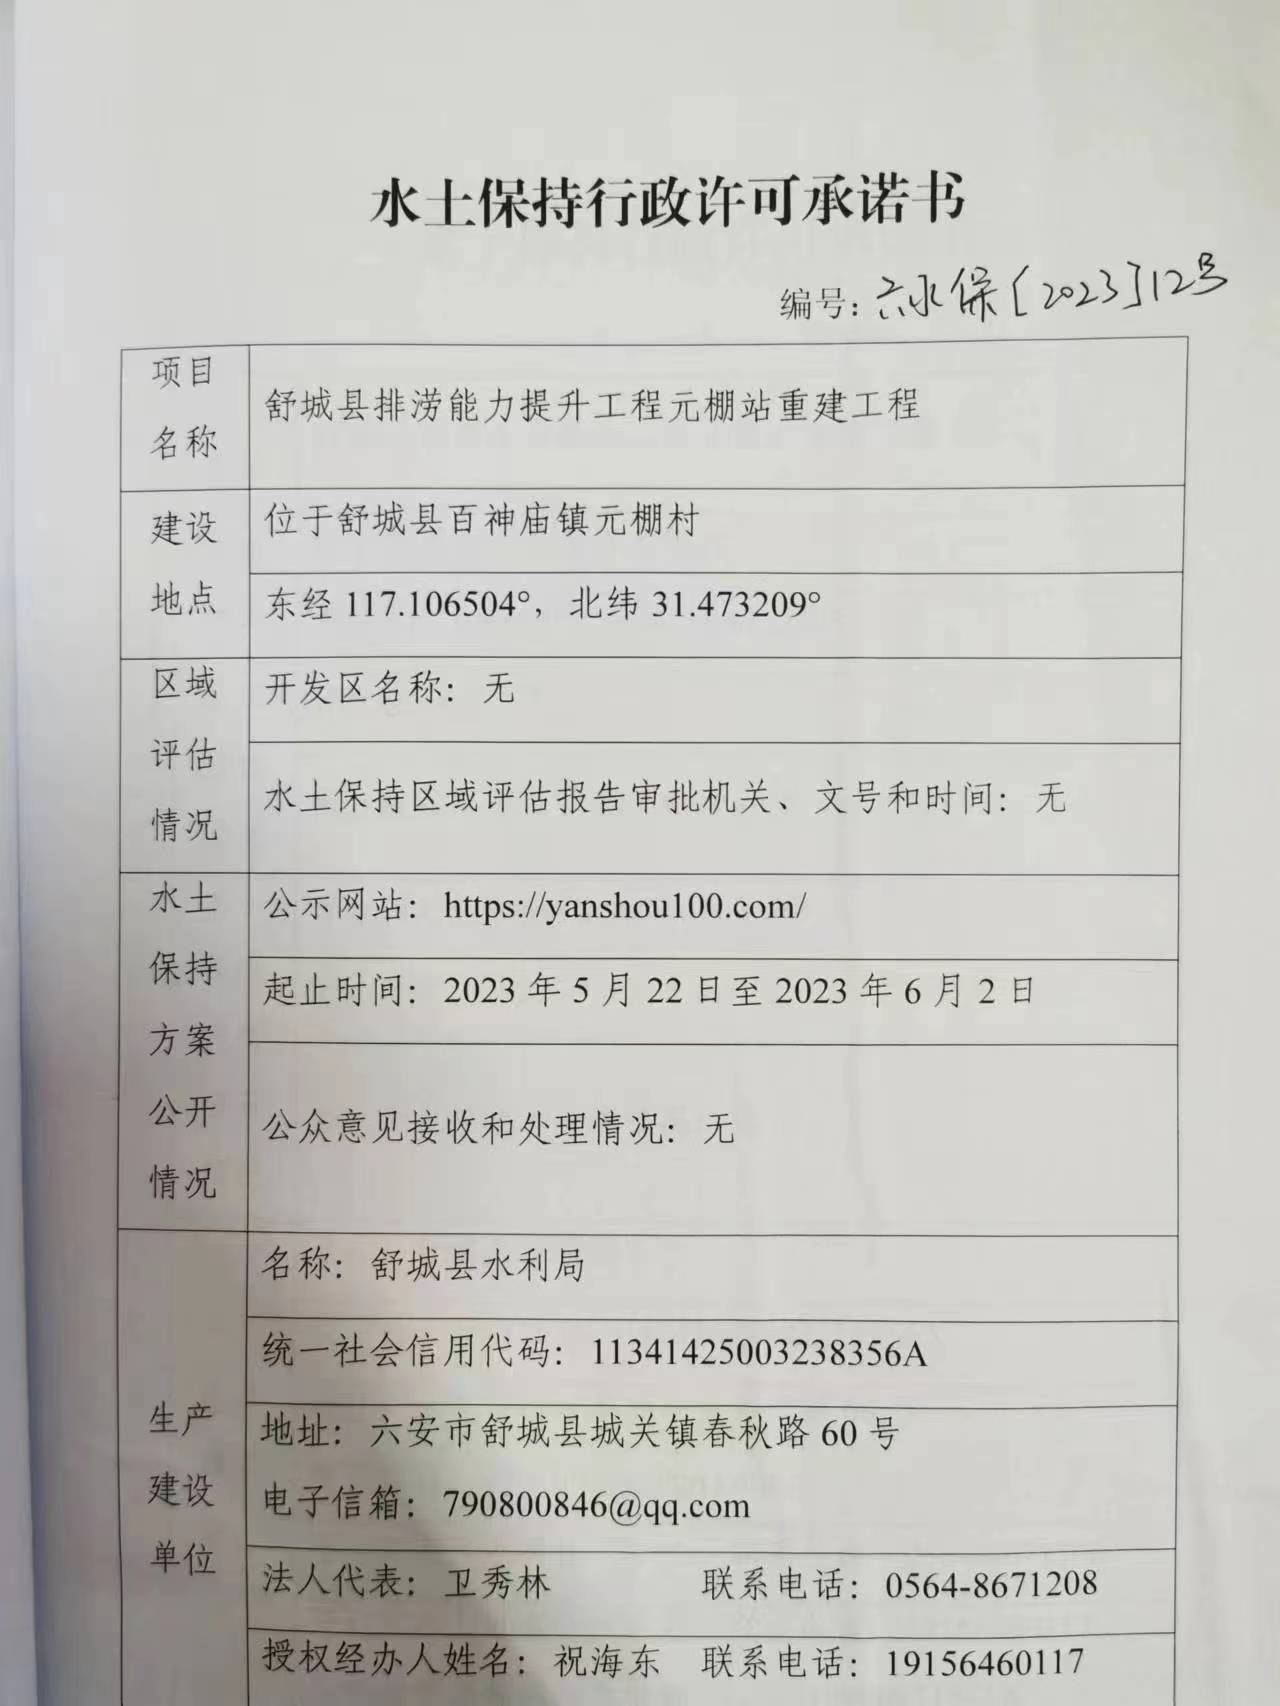 水土保持行政许可承诺书
编号：六水保〔2023〕12号
项目
名称
舒城县排涝能力提升工程元棚站重建工程
建设
地点
位于舒城县百神庙镇元棚村
东经 117.106504°，北纬 31.473209°
区域
评估
情况
开发区名称：无
水土保持区域评估报告审批机关、文号和时间：无
水土
保持
方案
公开
情况
公示网站：https://yanshou100.com/
起止时间：2023 年 5 月 22 日至 2023 年 6 月 2 日
公众意见接收和处理情况：无
生产
建设
单位
名称：舒城县水利局
统一社会信用代码：11341425003238356A
地址：六安市舒城县城关镇春秋路 60 号
电子信箱：790800846@qq.com
法人代表：卫秀林 联系电话：0564-8671208
授权经办人姓名：祝海东 联系电话：19156460117